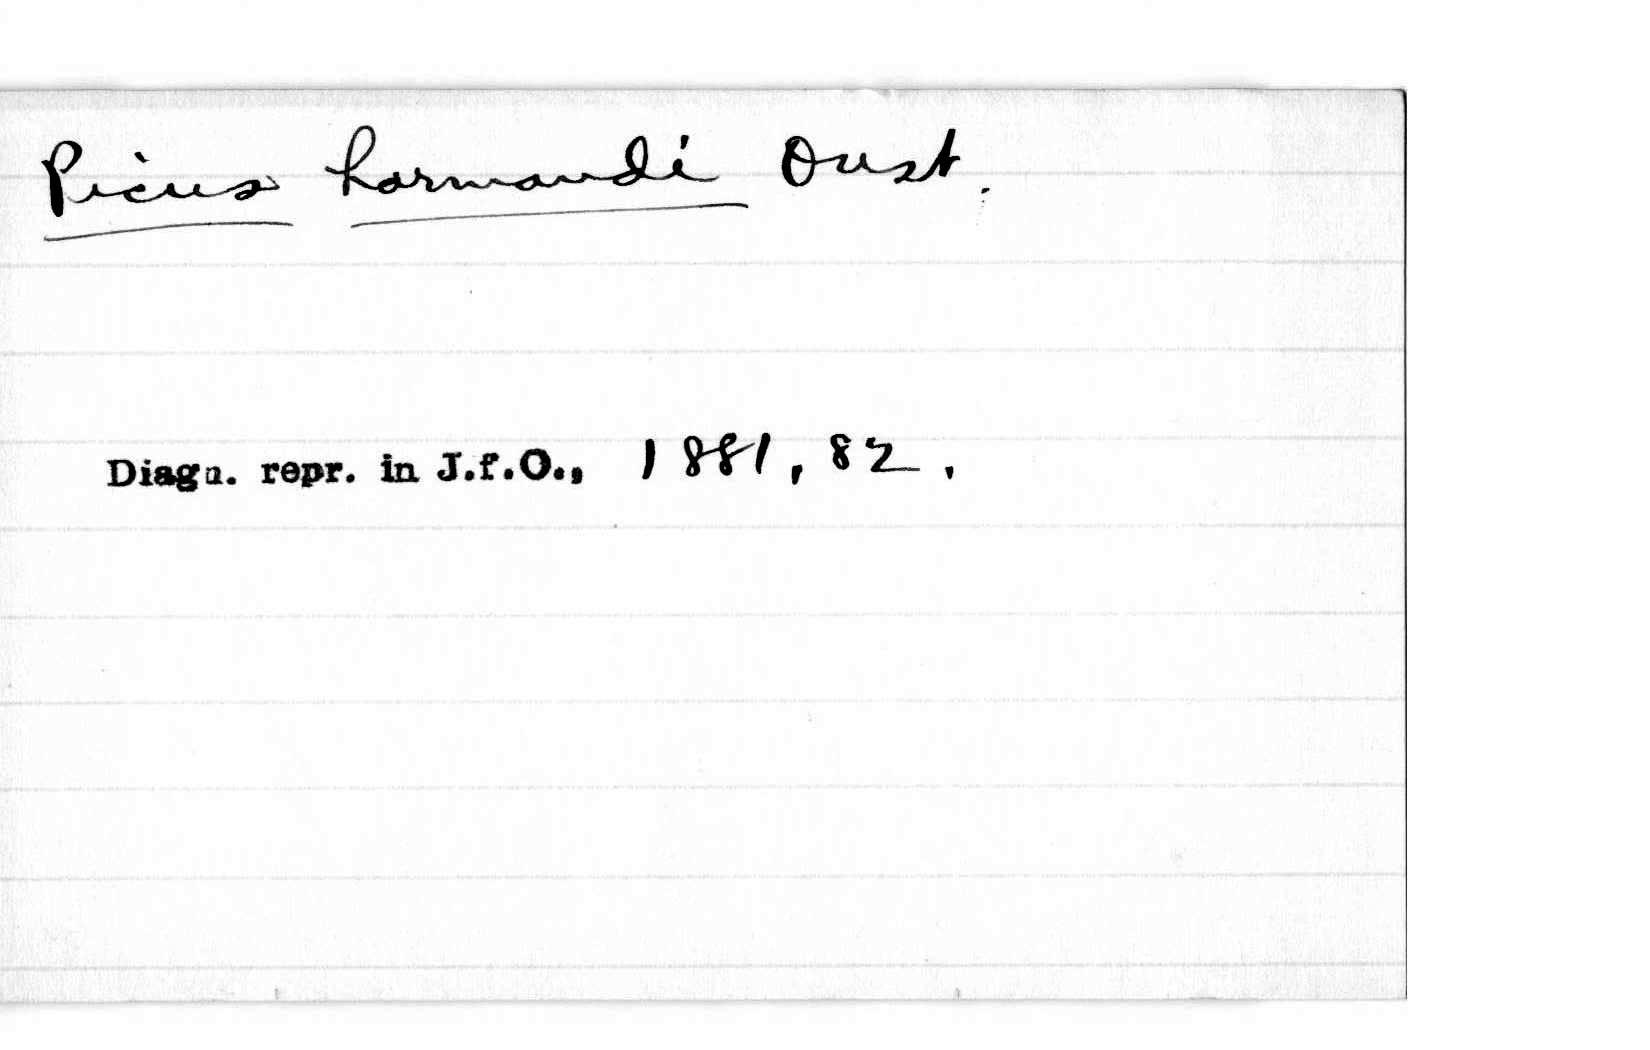 Picus harmandi Oust.
Diagn. repr. in J.f.O., 1881, 82.